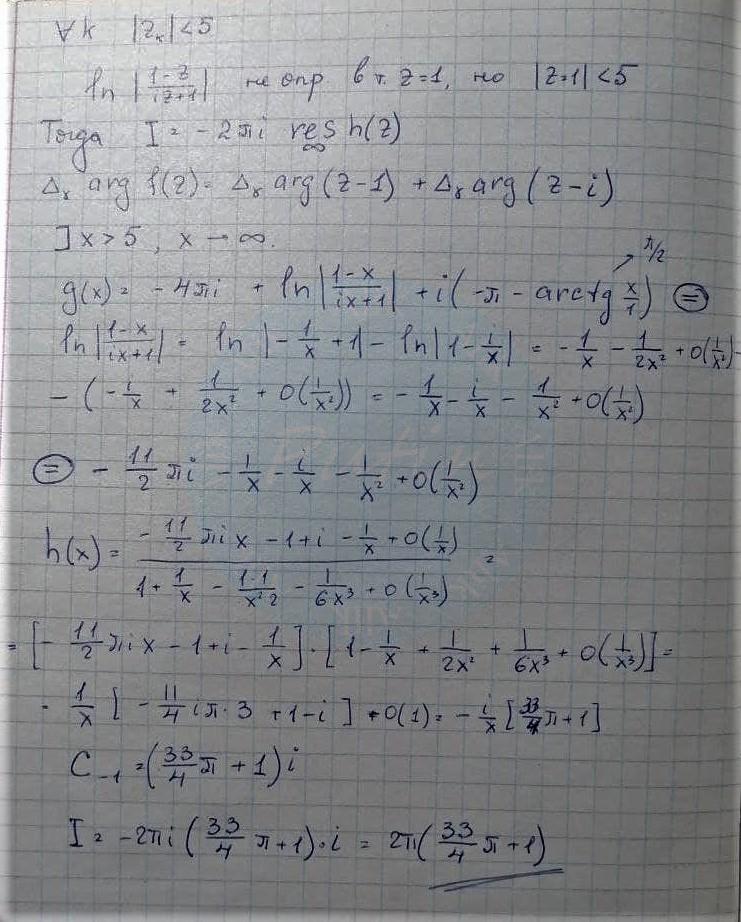 ∀k |z_k| < 5
ln |(1-z)/(iz+1)| не опр в т. z=1, но |z=1| < 5
Тогда I = -2πi res_∞ h(z)
Δ_γ arg f(z) = Δ_γ arg(z-1) + Δ_γ arg(z-i)
] x > 5, x → ∞.
π/2
g(x) = -4πi + ln|(1-x)/(ix+1)| + i(-π - arctg x/1) ⊜
ln|(1-x)/(ix+1)| = ln|-1/x + 1| - ln|1 - i/x| = -1/x - 1/(2x²) + o(1/x²) -
- (-i/x + 1/(2x²) + o(1/x²)) = -1/x - i/x - 1/x² + o(1/x²)
⊜ -11/2 πi - 1/x - i/x - 1/x² + o(1/x²)
h(x) = (-11/2 πix - 1 + i - 1/x + o(1/x)) / (1 + 1/x - 1·1/(x²2) - 1/(6x³) + o(1/x³)) =
= [-11/2 πix - 1 + i - 1/x] · [1 - 1/x + 1/(2x²) + 1/(6x³) + o(1/x³)] =
- 1/x [-11/4 iπ·3 + 1 - i] + o(1) = -i/x [33/4 π + 1]
C₋₁ = (33/4 π + 1) i
I = -2πi (33/4 π + 1)·i = 2π(33/4 π + 1)